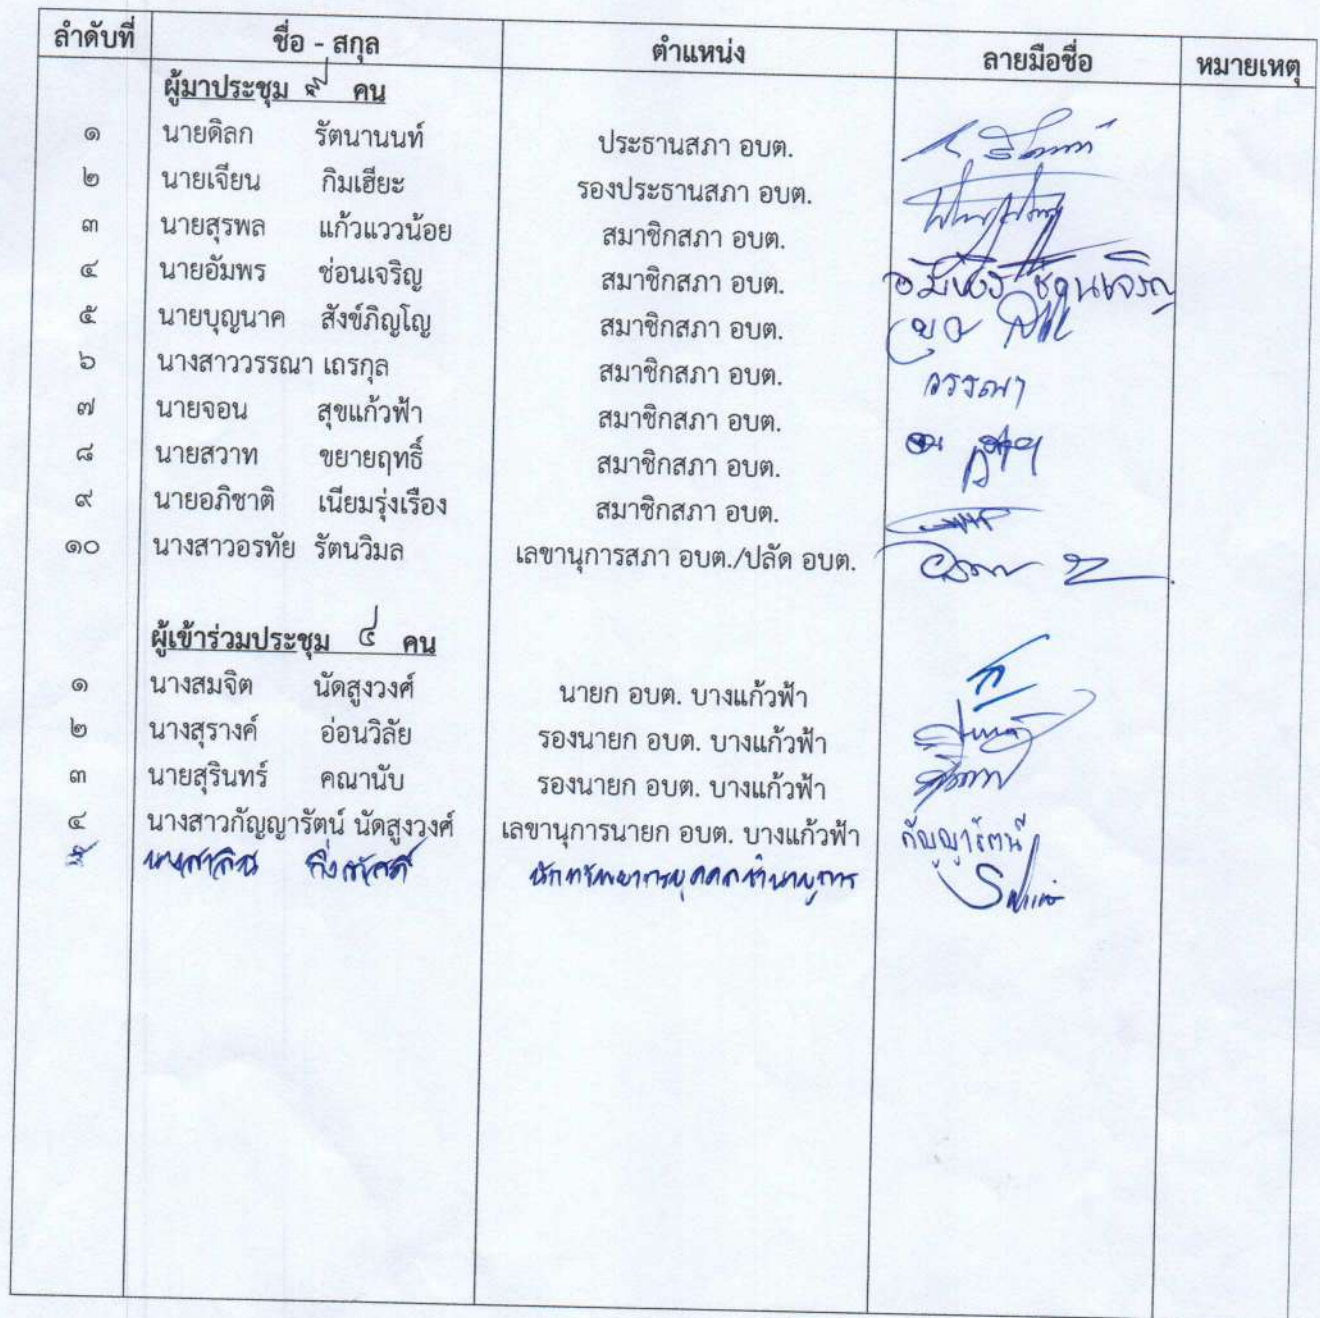 ลำดับที่ ชื่อ - สกุล ตำแหน่ง ลายมือชื่อ หมายเหตุ
ผู้มาประชุม คน
๑ นายดิลก รัตนานนท์ ประธานสภา อบต.
๒ นายเจียน กิมเฮียะ รองประธานสภา อบต.
๓ นายสุรพล แก้วแววน้อย สมาชิกสภา อบต.
๔ นายอัมพร ช่อนเจริญ สมาชิกสภา อบต. อัมพร ช่อนเจริญ
๕ นายบุญนาค สังข์ภิญโญ สมาชิกสภา อบต.
๖ นางสาววรรณา เถรกุล สมาชิกสภา อบต. วรรณา
๗ นายจอน สุขแก้วฟ้า สมาชิกสภา อบต.
๘ นายสวาท ขยายฤทธิ์ สมาชิกสภา อบต.
๙ นายอภิชาติ เนียมรุ่งเรือง สมาชิกสภา อบต.
๑๐ นางสาวอรทัย รัตนวิมล เลขานุการสภา อบต./ปลัด อบต.
ผู้เข้าร่วมประชุม ๔ คน
๑ นางสมจิต นัดสูงวงศ์ นายก อบต. บางแก้วฟ้า
๒ นางสุรางค์ อ่อนวิลัย รองนายก อบต. บางแก้วฟ้า
๓ นายสุรินทร์ คณานับ รองนายก อบต. บางแก้วฟ้า
๔ นางสาวกัญญารัตน์ นัดสูงวงศ์ เลขานุการนายก อบต. บางแก้วฟ้า กัญญารัตน์
๕ นักทรัพยากรบุคคลชำนาญการ